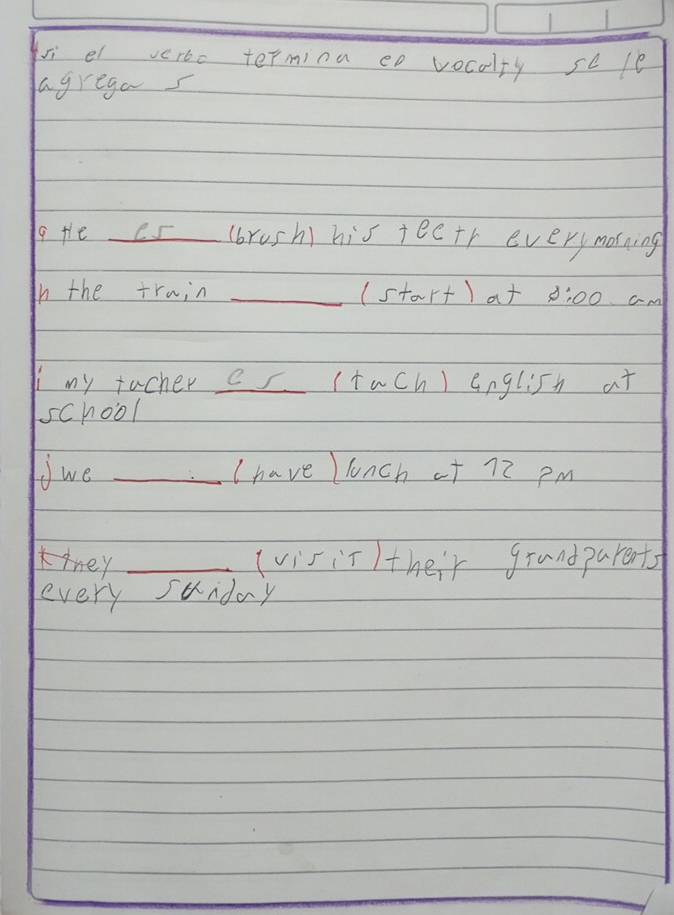 si el verbo termina en vocal+y se le
agrega s
g He es (brush) his teeth every morning
h the train ______ (start) at 8:00 am
i my tacher es (tach) english at
school
j we ______ (have) lunch at 12 PM
k they ______ (visit) their grandparents
every sunday